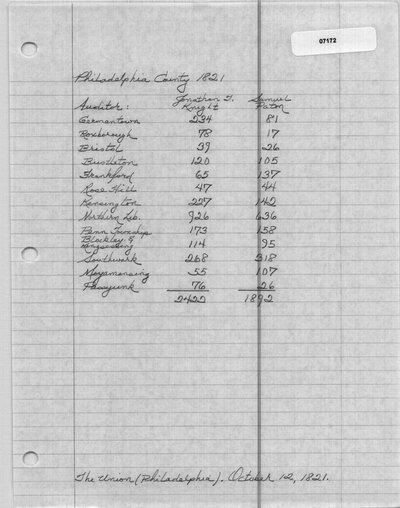 07172
Philadelphia County 1821
Jonathan T. Samuel
Auditor: Knight Paton
Germantown 234 81
Roxborough 78 17
Bristol 39 26
Bustleton 120 105
Frankford 65 137
Rose Hill 47 44
Kensington 227 142
Northern Lib. 926 636
Penn Township 173 158
Blockley &
Kingsessing 114 95
Southwark 268 318
Moyamensing 55 107
Passyunk 76 26
2422 1892
The Union (Philadelphia). October 12, 1821.